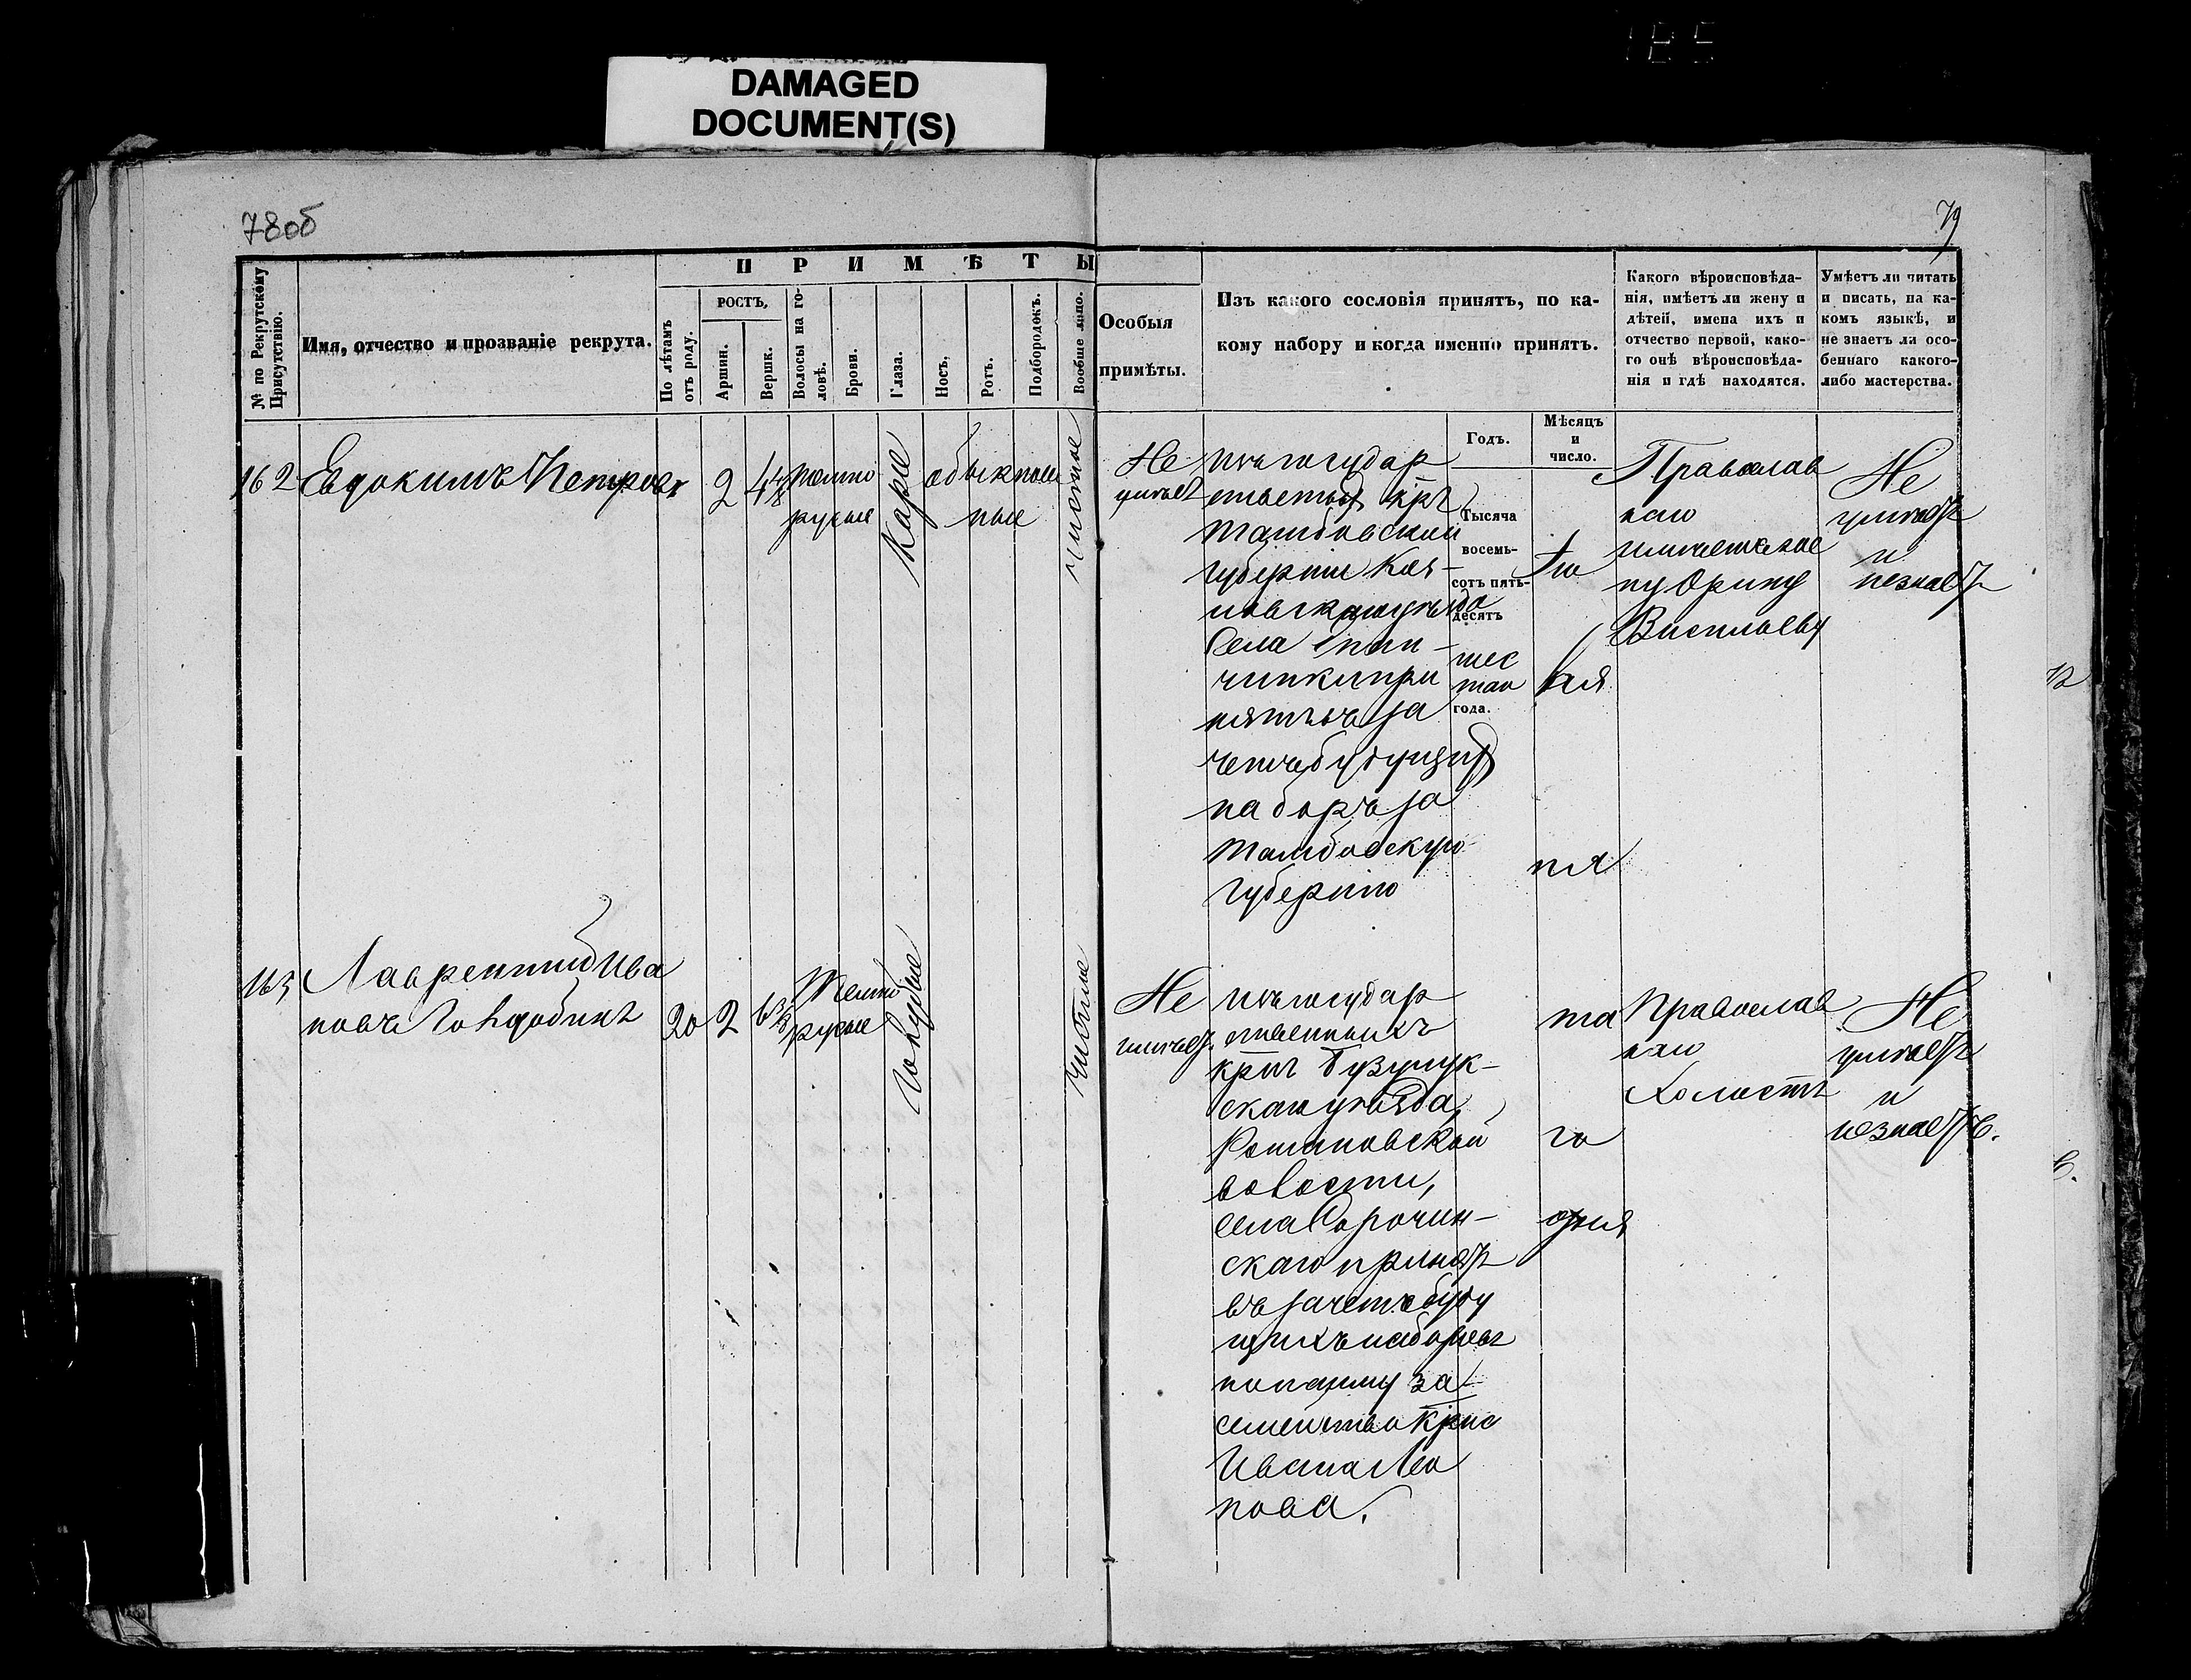 DAMAGED
DOCUMENT(S)
78об
79
№ по Рекрутскому Присутствію.
Имя, отчество и прозваніе рекрута.
ПРИМѢТЫ
По лѣтамъ отъ роду.
РОСТЪ,
Аршин.
Вершк.
Волосы на головѣ.
Брови.
Глаза.
Носъ.
Ротъ.
Подбородокъ.
Вообще лицо.
Особыя
примѣты.
Изъ какого сословія принятъ, по ка-
кому набору и когда именно принятъ.
Какого вѣроисповѣда-
нія, имѣетъ ли жену и
дѣтей, имена ихъ и
отчество первой, како-
го онѣ вѣроисповѣда-
нія и гдѣ находятся.
Умѣетъ ли читать
и писать, на ка-
комъ языкѣ, и
не знаетъ ли осо-
беннаго какого-
либо мастерства.
Годъ.
Мѣсяцъ
и
число.
162
Евдокимъ Петровъ
2
темно
русые
Каріе
обыкновен
ные
чистое
Не
имѣетъ
изъ государ
ственныхъ кр.
Тамбовской
губерніи Коз-
ловскаго уѣзда
Села
при
нятъ въ за
четъ будущихъ
наборъ за
Тамбовскую
губернію
Тысяча
восемь-
сотъ пять-
десятъ
шес
таго
года.
Православ
наго
имѣетъ же
ну Орину
Васильеву
Не
умѣетъ
и
незнаетъ
163
Лаврентій Ива
новъ
20
2
6 3/8
Темно
русые
Голубые
чистое
Не
имѣетъ.
изъ государ
ственныхъ
крт. Бузулук-
скаго уѣзда,
Романовской
волости,
села Сорочин-
скаго принятъ
въ зачетъ буду
щихъ наборовъ
по найму за
семейство крт.
Ивана Лео
нова.
та
го
дня
Православ
наго
Холостъ
Не
умѣетъ
и
незнаетъ.